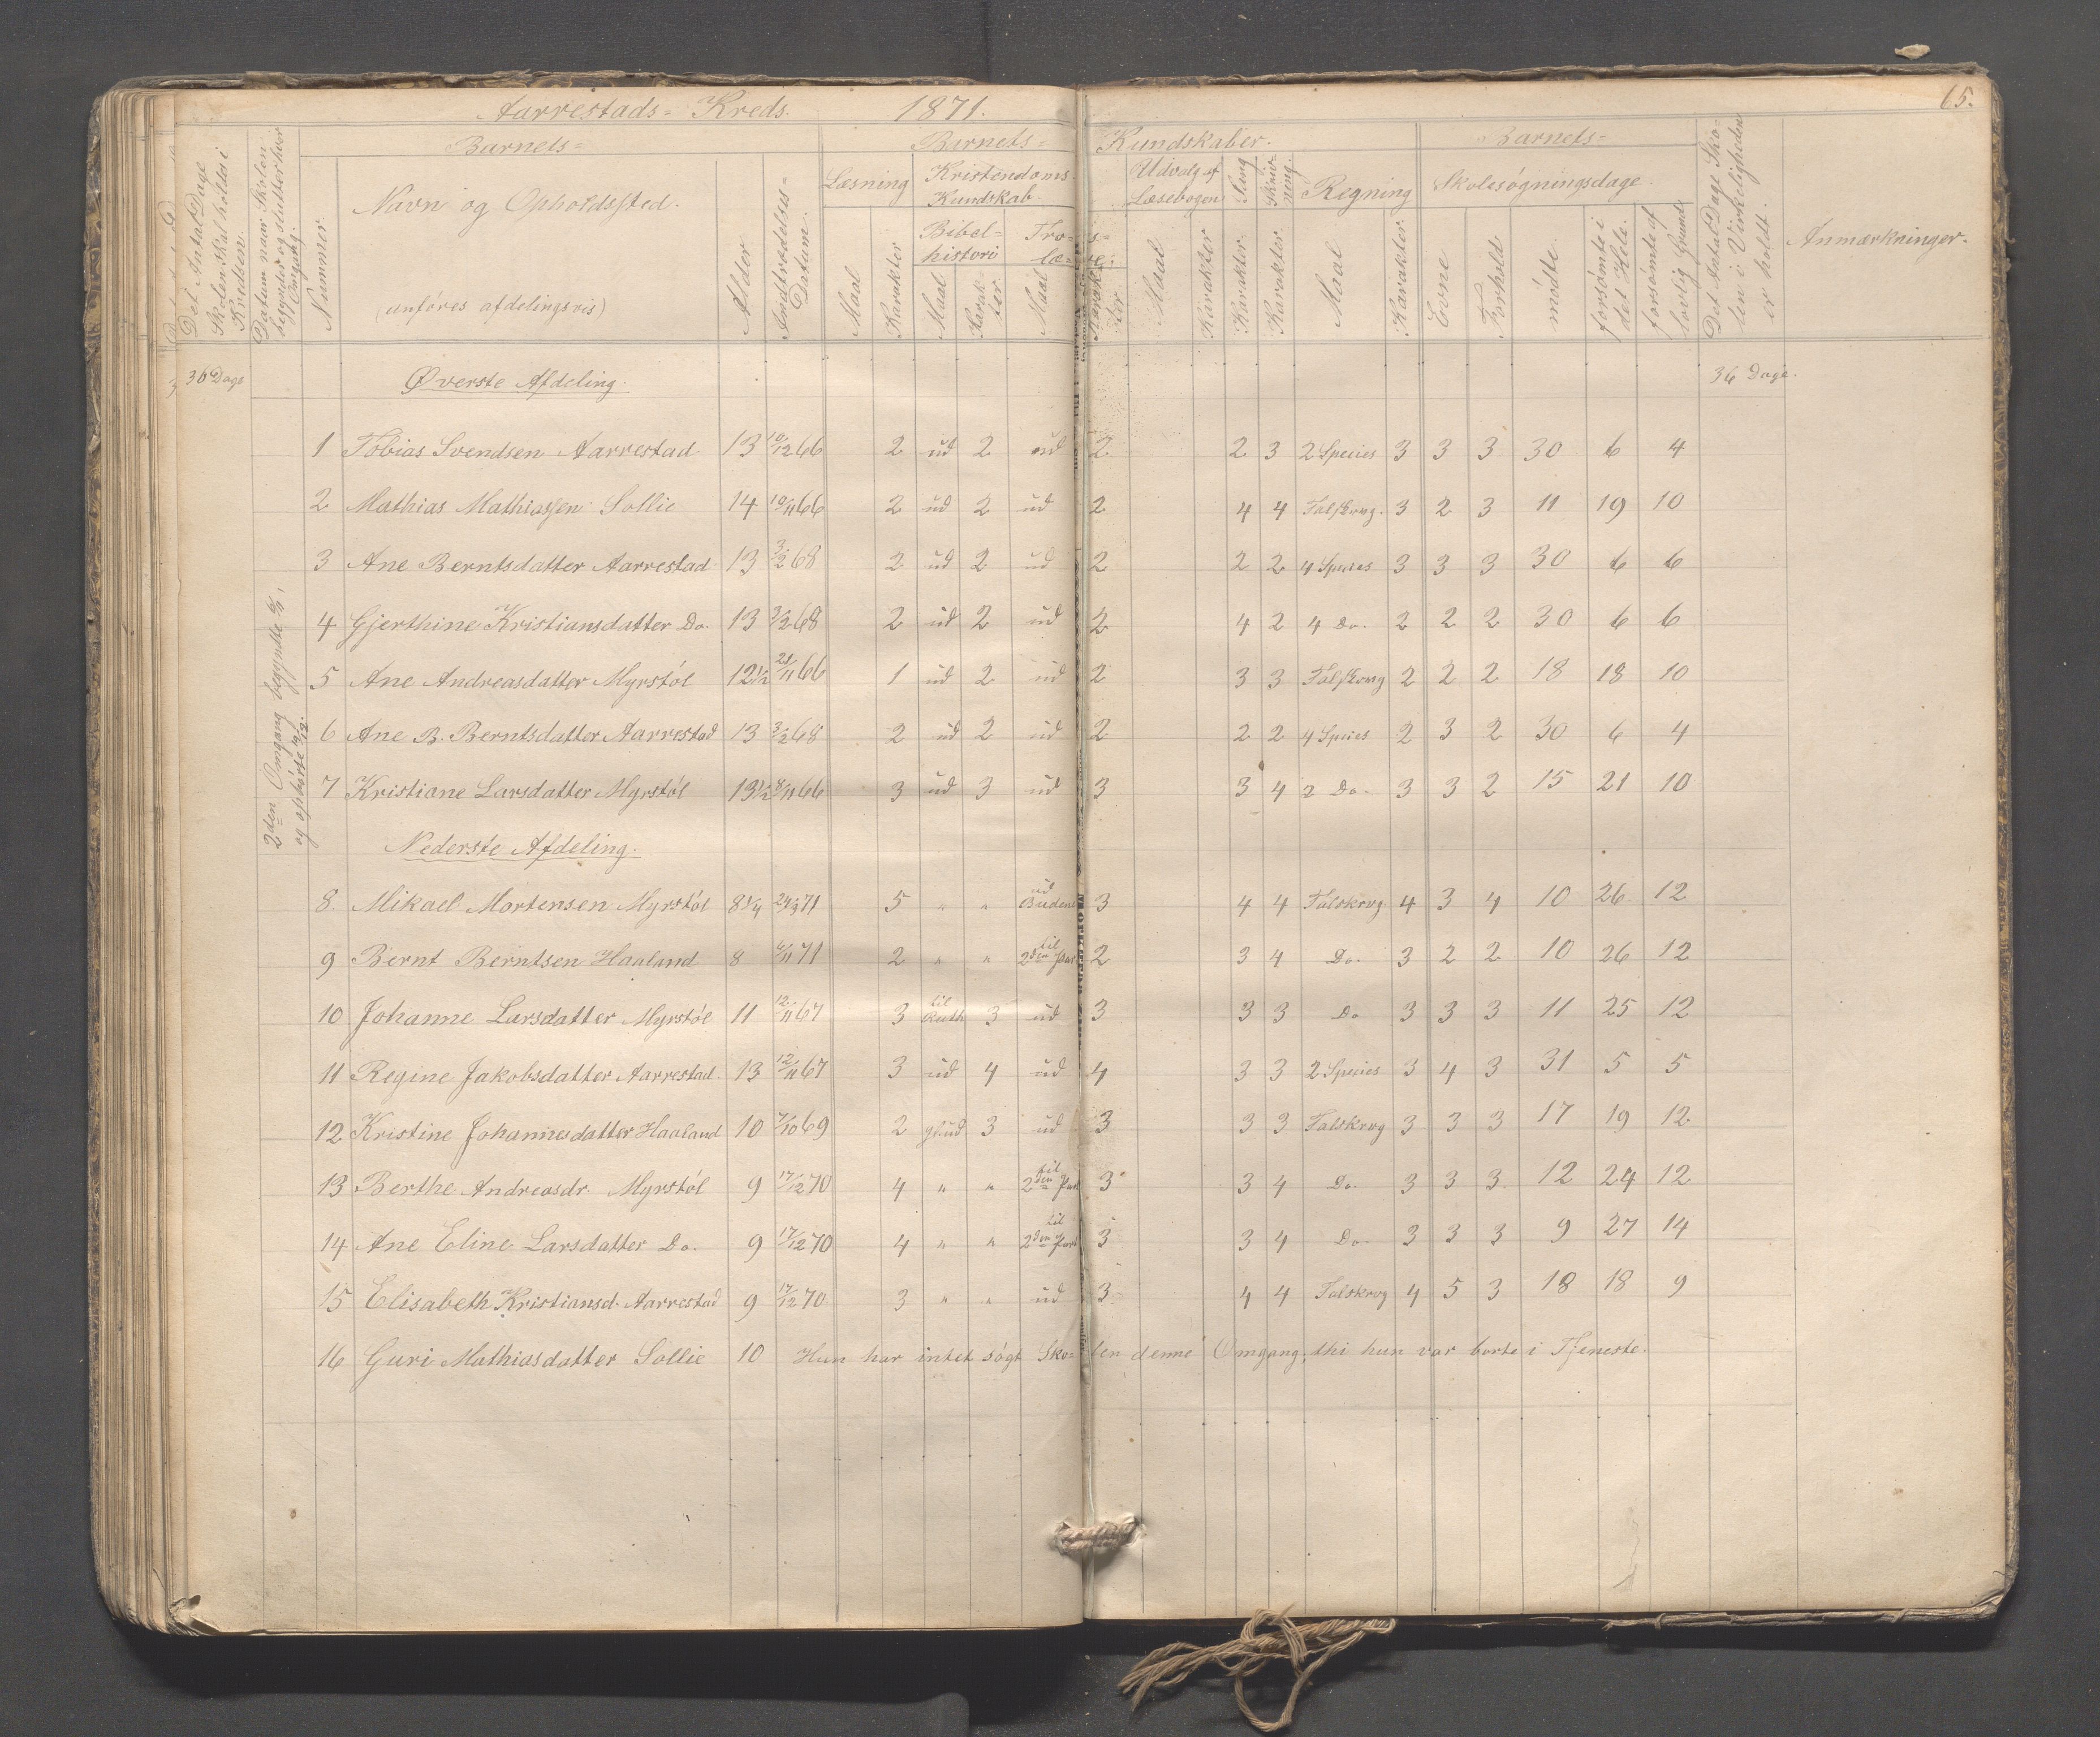 Aarrestads= Kreds. 1871. 65.
Det Antal Dage Skolen skal holdes i Kredsen.
Datum naar Skolen begynder og slutter hver Omgang.
Barnets=
Nummer
Navn og Opholdssted.
(anføres afdelingsvis)
Alder
Indtrædelses=Datum.
Barnets= Kundskaber.
Læsning
Maal
Karakter
Kristendoms Kundskab.
Bibel=historie
Maal
Karakter.
Troeslære.
Maal
Karakter
Udvalg af Læsebogen
Maal
Karakter
Sang
Karakter.
Skrivning.
Karakter.
Regning
Maal
Karakter.
Barnets=
Evne
Forhold
Skolesøgningsdage.
mødte
forsømte i det Hele.
forsømte af lovlig Grund
Det Antal Dage Skolen i Virkeligheden er holdt.
Anmærkninger.
36 Dage Øverste Afdeling. 36 Dage.
2den Omgang begyndte
og ophørte
1 Tobias Svendsen Aarrestad 13 10/12 66 2 ud 2 ud 2 2 3 2 Species 3 3 3 30 6 4
2 Mathias Mathiassen Sollie 14 10/11 66 2 ud 2 ud 2 4 4 Talskrvg. 3 2 3 11 19 10
3 Ane Berntsdatter Aarrestad 13 3/2 68 2 ud 2 ud 2 2 2 4 Species 3 3 3 30 6 6
4 Gjerthine Kristiansdatter Do. 13 3/2 68 2 ud 2 ud 2 4 2 4 Do. 2 2 2 30 6 6
5 Ane Andreasdatter Myrstøl 12½ 21/11 66 1 ud 2 ud 2 3 3 Talskrvg 2 2 2 18 18 10
6 Ane B. Berntsdatter Aarrestad 13 3/2 68 2 ud 2 ud 2 2 2 4 Species 2 3 2 30 6 4
7 Kristiane Larsdatter Myrstøl 13½ /11 66 3 ud 3 ud 3 3 4 2 Do. 3 3 2 15 21 10
Nederste Afdeling.
8. Mikael Mortensen Myrstøl 8¼ 24/3 71 5 " " ud Budene 3 4 4 Talskrvg 4 3 4 10 26 12
9 Bernt Berntsen Haaland 8 /11 71 2 " " til 2den Part 2 3 4 Do. 3 2 2 10 26 12
10 Johanne Larsdatter Myrstøl 11 12/11 67 3 til Ruth 3 ud 3 3 3 Do 3 3 3 11 25 12
11 Regine Jakobsdatter Aarrestad. 13 12/11 67 3 ud 4 ud 4 3 3 2 Species 3 4 3 31 5 5
12 Kristine Johannesdatter Haaland 10 7/10 69 2 3 ud 3 3 3 Talskrvg 3 3 3 17 19 12
13 Berthe Andreasdr. Myrstøl 9 17/12 70 4 " " til 2den Part 3 3 4 Do 3 3 3 12 24 12
14 Ane Eline Larsdatter Do. 9 17/12 70 4 " " til 2den Part 3 3 4 Do 3 3 3 9 27 14
15 Elisabeth Kristiansd. Aarrestad 9 17/12 70 3 " " ud 3 4 4 Talskrvg 4 5 3 18 18 9
16 Guri Mathiasdatter Sollie 10 Hun har intet søgt Skolen denne Omgang, thi hun var borte i Tjeneste.